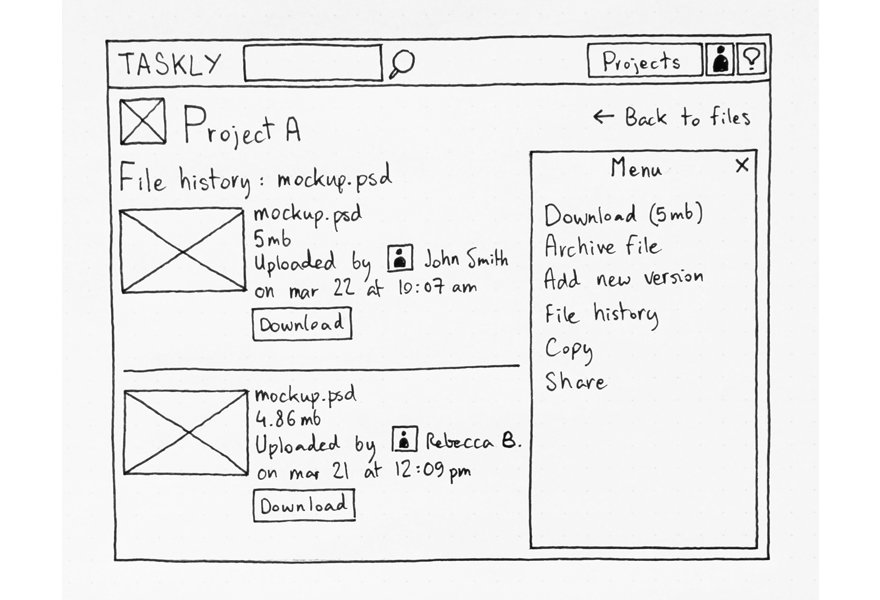 TASKLY
Projects
Project A
← Back to files
File history: mockup.psd
mockup.psd
5mb
Uploaded by John Smith
on mar 22 at 10:07 am
Download
mockup.psd
4.86mb
Uploaded by Rebecca B.
on mar 21 at 12:09 pm
Download
Menu X
Download (5mb)
Archive file
Add new version
File history
Copy
Share